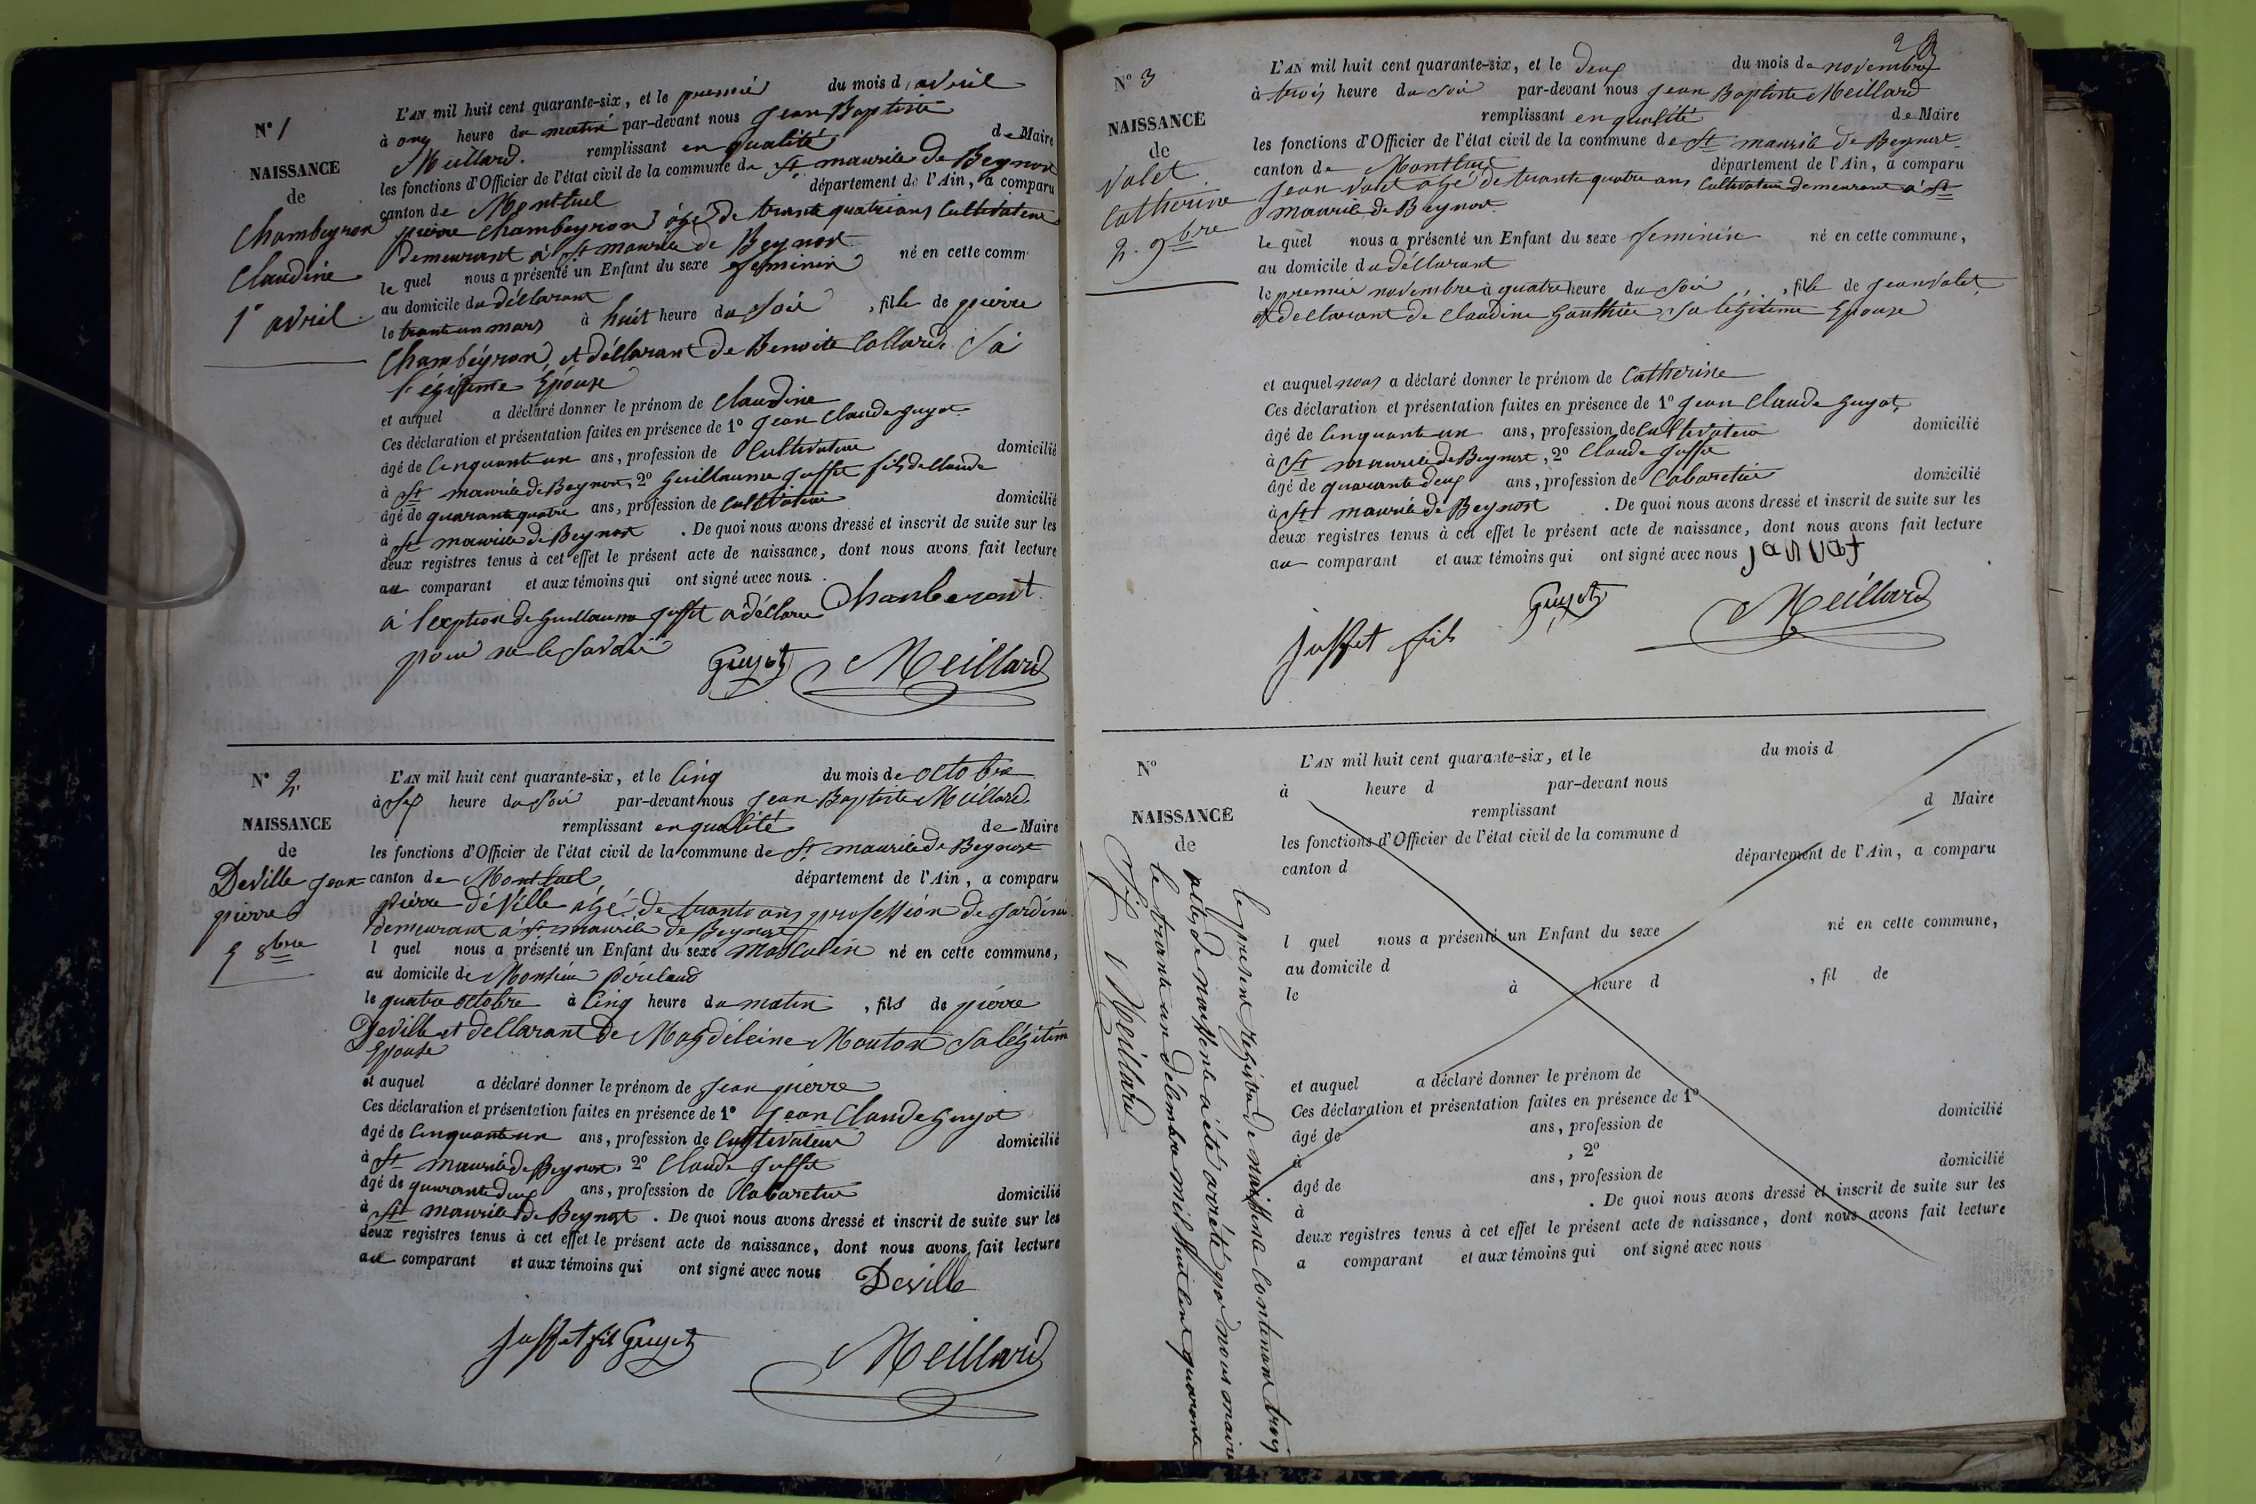 N° 1
NAISSANCE
de
Chambeyron
Claudine
1er avril
L'AN mil huit cent quarante-six, et le premié du mois d'avril
à onz heure du matin par-devant nous Jean Baptiste
Meillard. remplissant en qualité de Maire
les fonctions d'Officier de l'état civil de la commune de St maurice de Beynost
canton de Montluel département de l'Ain, a comparu
pierre Chambeyron âgé de trante quatre ans Cultivateur
demeurant à St maurice de Beynost
le quel nous a présenté un Enfant du sexe feminin né en cette comm
au domicile du déclarant
le trante un mars à huit heure du soir, fille de pierre
Chambéyron et déclarant de Benoite Collard Sa
légitime Epouse
et auquel a déclaré donner le prénom de Claudine
Ces déclaration et présentation faites en présence de 1° Jean Claude Guyot
âgé de Cinquante un ans, profession de Cultivateur domicilié
à St maurice de Beynost, 2° Guillaume Juffet fils de Claude
âgé de quarante quatre ans, profession de Cultivateur domicilié
à St maurice de Beynost. De quoi nous avons dressé et inscrit de suite sur les
deux registres tenus à cet effet le présent acte de naissance, dont nous avons fait lecture
au comparant et aux témoins qui ont signé avec nous.
à l'exption de Guillaume Juffet a déclaré Chanberont
pour ne le savoir
Guyot Meillard
N° 2
NAISSANCE
de
Deville Jean
pierre
5 8bre
L'AN mil huit cent quarante-six, et le Cinq du mois de octobre
à Six heure du Soir par-devant nous Jean Baptiste Meillard
remplissant en qualité de Maire
les fonctions d'Officier de l'état civil de la commune de St maurice de Beynost
canton de Montluel département de l'Ain, a comparu
pierre déVille âgé de trante ans profession de Jardinié
demeurant à St maurice de Beynost
l quel nous a présenté un Enfant du sexe masculin né en cette commune,
au domicile de Monsieur
le quatre octobre à Cinq heure du matin, fils de pierre
Deville et déclarant de Magdeleine Mouton Sa légitime
Epouse
et auquel a déclaré donner le prénom de Jean pierre
Ces déclaration et présentation faites en présence de 1° Jean Claude Guyot
âgé de Cinquante un ans, profession de Cultivateur domicilié
à St maurice de Beynost, 2° Claude Juffet
âgé de quarante deux ans, profession de Cabaretier domicilié
à St maurice de Beynost. De quoi nous avons dressé et inscrit de suite sur les
deux registres tenus à cet effet le présent acte de naissance, dont nous avons fait lecture
au comparant et aux témoins qui ont signé avec nous
Deville
Juffet fils Guyot
Meillard
N° 3
NAISSANCE
de
Valet
Catherine
2. 9bre
L'AN mil huit cent quarante-six, et le deux du mois de novembre
à trois heure du soir par-devant nous Jean Baptiste Meillard
remplissant en qualité de Maire
les fonctions d'Officier de l'état civil de la commune de St maurice de Beynost
canton de Montluel département de l'Ain, a comparu
Jean Valet âgé de trante quatre ans Cultivateur demeurant à St
maurice de Beynost
le quel nous a présenté un Enfant du sexe feminin né en cette commune,
au domicile du déclarant
le premier novembre à quatre heure du soir, fille de Jean Valet
et déclarant de Claudine Gauthier sa légitime Epouse
et auquel nous a déclaré donner le prénom de Catherine
Ces déclaration et présentation faites en présence de 1° Jean Claude Guyot,
âgé de Cinquante un ans, profession de Cultivateur domicilié
à St maurice de Beynost, 2° Claude Juffet
âgé de quarante deux ans, profession de Cabaretier domicilié
à St maurice de Beynost. De quoi nous avons dressé et inscrit de suite sur les
deux registres tenus à cet effet le présent acte de naissance, dont nous avons fait lecture
au comparant et aux témoins qui ont signé avec nous
Juffet fils
Guyot
Meillard
N°
NAISSANCE
de
L'AN mil huit cent quarante-six, et le du mois d
à heure d par-devant nous
remplissant d Maire
les fonctions d'Officier de l'état civil de la commune d
canton d département de l'Ain, a comparu
l quel nous a présenté un Enfant du sexe né en cette commune,
au domicile d
le à heure d, fil de
et auquel a déclaré donner le prénom de
Ces déclaration et présentation faites en présence de 1°
âgé de ans, profession de domicilié
à, 2°
âgé de ans, profession de domicilié
à. De quoi nous avons dressé et inscrit de suite sur les
deux registres tenus à cet effet le présent acte de naissance, dont nous avons fait lecture
a comparant et aux témoins qui ont signé avec nous
le présent registre de naissance contenant trois
actes de naissence a été arrété par nous maire
le trante un décembre mil huit cent quarante
Meillard